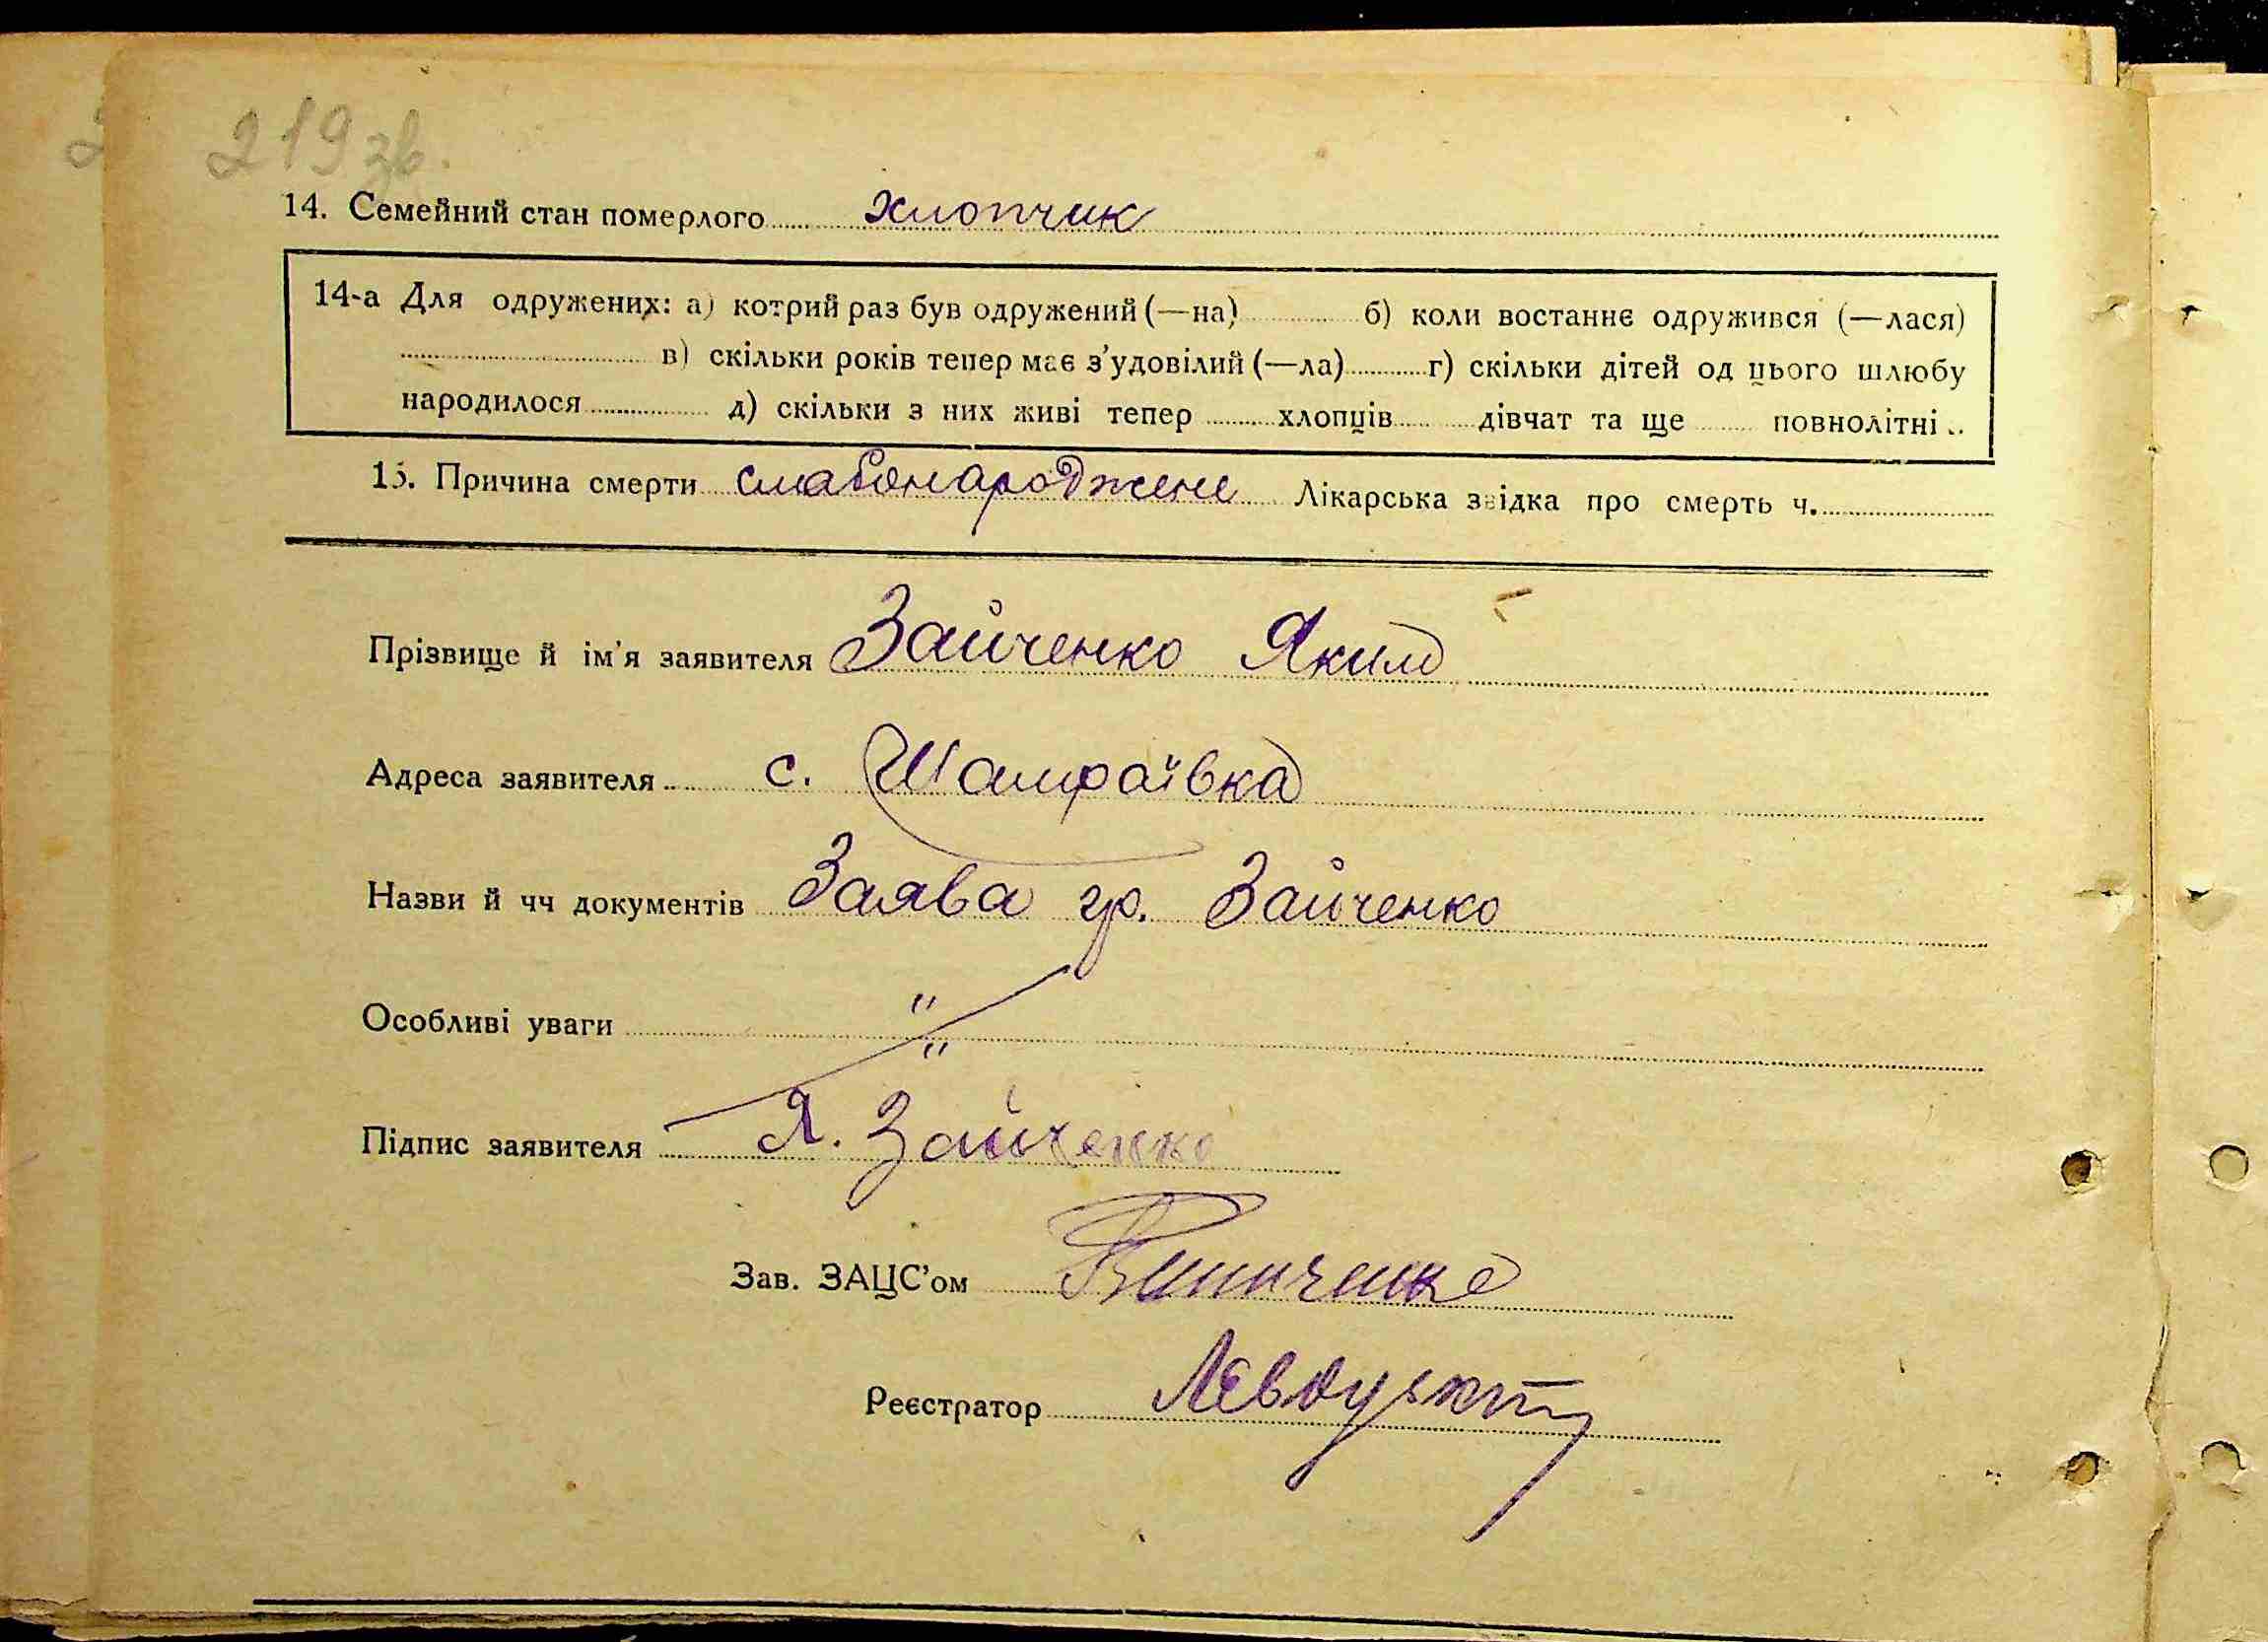 219 зв.
14. Семейний стан померлого хлопчик
14-а Для одружених: а) котрий раз був одружений (—на) б) коли востаннє одружився (—лася)
в) скільки років тепер має з’удовілий (—ла) г) скільки дітей од цього шлюбу
народилося д) скільки з них живі тепер хлопців дівчат та ще повнолітні
15. Причина смерти слабонароджене Лікарська звідка про смерть ч.
Прізвище й ім’я заявителя Зайченко Яким
Адреса заявителя с. Шамраївка
Назви й чч документів Заява гр. Зайченко
Особливі уваги " "
Підпис заявителя Я. Зайченко
Зав. ЗАЦС’ом
Реєстратор